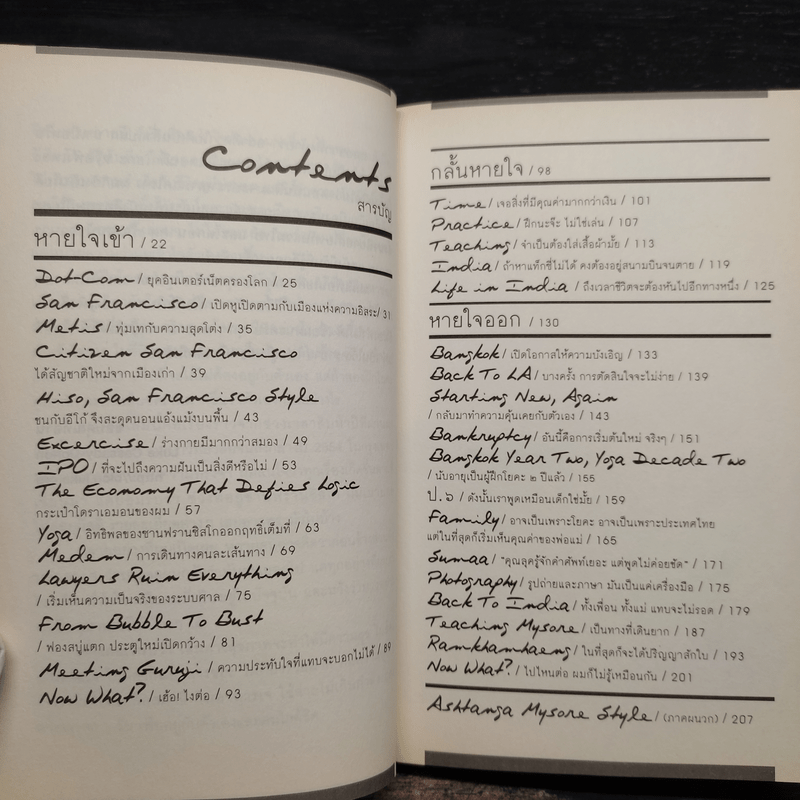 Contents
สารบัญ
หายใจเข้า / 22
Dot-Com / ยุคอินเตอร์เน็ตครองโลก / 25
San Francisco / เปิดหูเปิดตามกับเมืองแห่งความอิสระ / 31
Metis / ทุ่มเทกับความสุดโต่ง / 35
Citizen San Francisco
ได้สัญชาติใหม่จากเมืองเก่า / 39
Hiso, San Francisco Style
ชนกับอีโก้ จึงสะดุดนอนแอ้งแม้งบนพื้น / 43
Excercise / ร่างกายมีมากกว่าสมอง / 49
IPO / ที่จะไปถึงความฝันเป็นสิ่งดีหรือไม่ / 53
The Economy That Defies Logic
กระเป๋าโดราเอมอนของผม / 57
Yoga / อิทธิพลของซานฟรานซิสโกออกฤทธิ์เต็มที่ / 63
Medem / การเดินทางคนละเส้นทาง / 69
Lawyers Ruin Everything
/ เริ่มเห็นความเป็นจริงของระบบศาล / 75
From Bubble To Bust
/ ฟองสบู่แตก ประตูใหม่เปิดกว้าง / 81
Meeting Guruji / ความประทับใจที่แทบจะบอกไม่ได้ / 89
Now What? / เฮ้อ! ไงต่อ / 93
กลั้นหายใจ / 98
Time / เจอสิ่งที่มีคุณค่ามากกว่าเงิน / 101
Practice / ฝึกนะจ๊ะ ไม่ใช่เล่น / 107
Teaching / จำเป็นต้องใส่เสื้อผ้ามั้ย / 113
India / ถ้าหาแท็กซี่ไม่ได้ คงต้องอยู่สนามบินจนตาย / 119
Life in India / ถึงเวลาชีวิตจะต้องหันไปอีกทางหนึ่ง / 125
หายใจออก / 130
Bangkok / เปิดโอกาสให้ความบังเอิญ / 133
Back To LA / บางครั้ง การตัดสินใจจะไม่ง่าย / 139
Starting New, Again
/ กลับมาทำความคุ้นเคยกับตัวเอง / 143
Bankruptcy / อันนี้คือการเริ่มต้นใหม่ จริงๆ / 151
Bangkok Year Two, Yoga Decade Two
/ นับอายุเป็นผู้ฝึกโยคะ ๒ ปีแล้ว / 155
ป.๖ / ดังนั้นเราพูดเหมือนเด็กใช่มั้ย / 159
Family / อาจเป็นเพราะโยคะ อาจเป็นเพราะประเทศไทย
แต่ในที่สุดก็เริ่มเห็นคุณค่าของพ่อแม่ / 165
Sumaa / "คุณลุครู้จักคำศัพท์เยอะ แต่พูดไม่ค่อยชัด" / 171
Photography / รูปถ่ายและภาษา มันเป็นแค่เครื่องมือ / 175
Back To India / ทั้งเพื่อน ทั้งแม่ แทบจะไม่รอด / 179
Teaching Mysore / เป็นทางที่เดินยาก / 187
Ramkhamhaeng / ในที่สุดก็จะได้ปริญญาสักใบ / 193
Now What? / ไปไหนต่อ ผมก็ไม่รู้เหมือนกัน / 201
Ashtanga Mysore Style / (ภาคผนวก) / 207